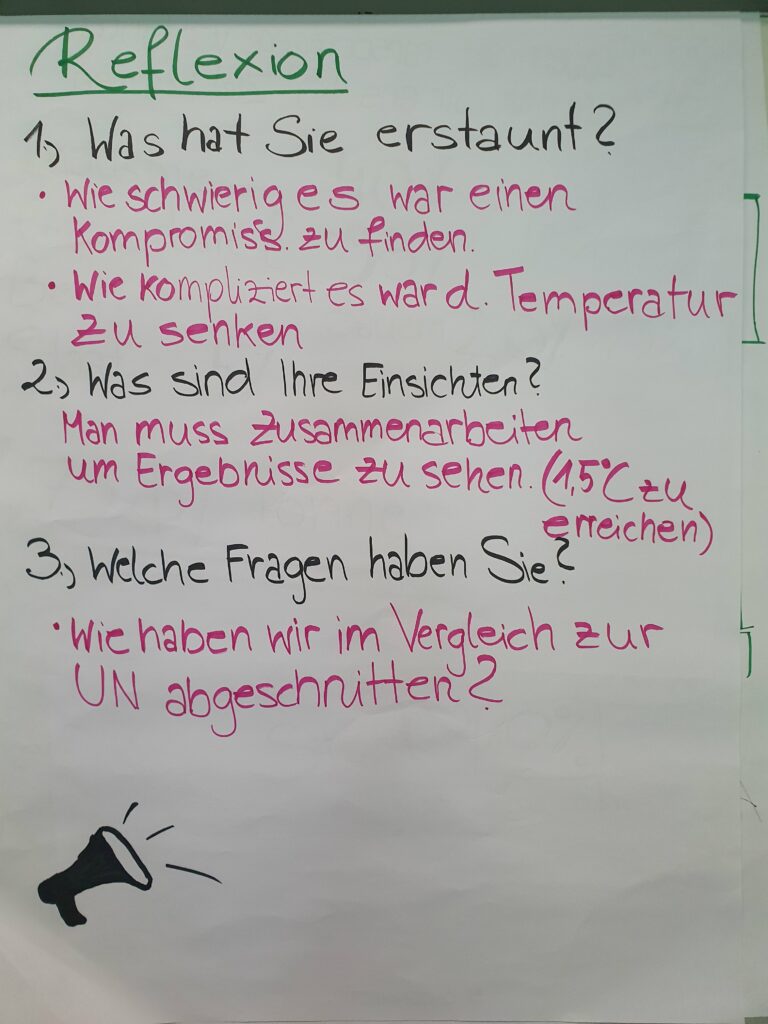 Reflexion
1.) Was hat Sie erstaunt?
• Wie schwierig es war einen
Kompromiss zu finden.
• Wie kompliziert es war d. Temperatur
zu senken
2.) Was sind Ihre Einsichten?
Man muss zusammenarbeiten
um Ergebnisse zu sehen. (1,5°C zu
erreichen)
3.) Welche Fragen haben Sie?
• Wie haben wir im Vergleich zur
UN abgeschnitten?